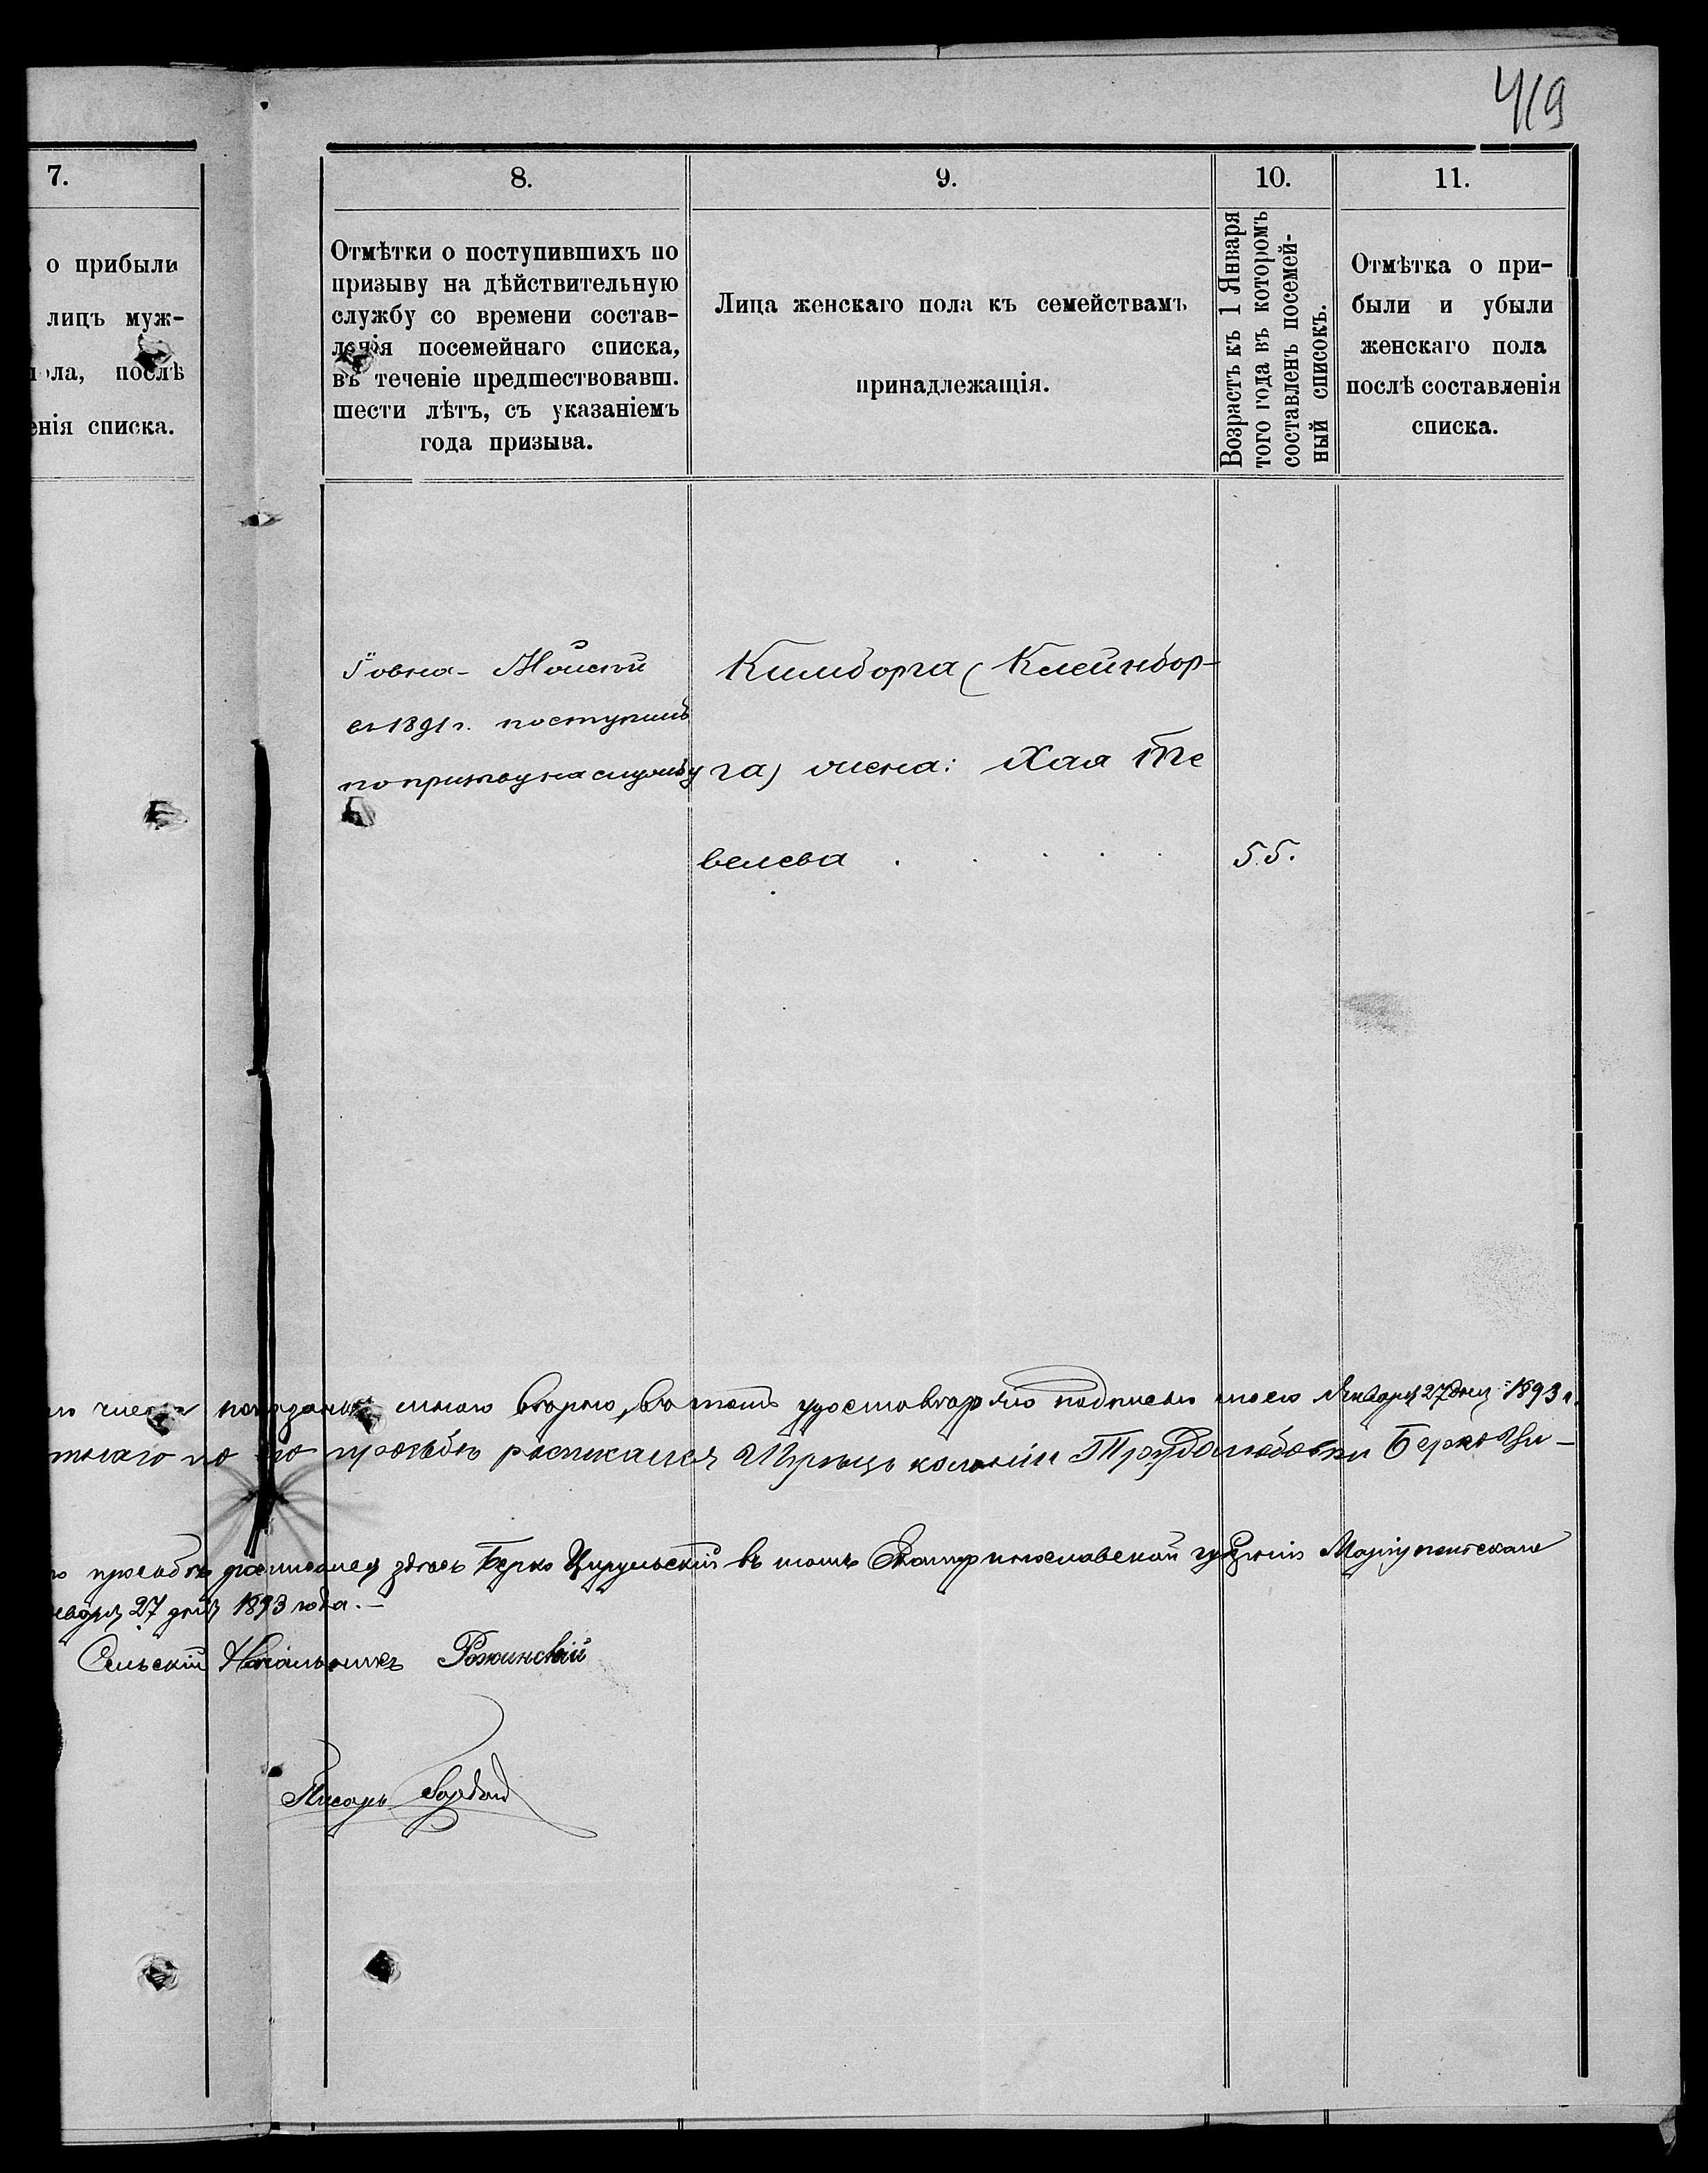 419
7.
о прибыли
лицъ муж-
пола, послѣ
енія списка.
8.
Отмѣтки о поступившихъ по
призыву на дѣйствительную
службу со времени состав-
ленія посемейнаго списка,
въ теченіе предшествовавш.
шести лѣтъ, съ указаніемъ
года призыва.
9.
Лица женскаго пола къ семействамъ
принадлежащія.
10.
Возрастъ къ 1 Января
того года въ которомъ
составленъ посемей-
ный списокъ.
11.
Отмѣтка о при-
были и убыли
женскаго пола
послѣ составленія
списка.
въ 1891 г. поступилъ
по призыву на службу
Кимборга (Клейнбор-
га) жена: Хая Те
велева . . . . .
55.
мною вѣрно, въ томъ удостовѣряю подписью моею Января 27 дня 1893 г.
по его просьбѣ росписался колоніи Трудолюбовки Берко Ци-
просьбѣ росписался здѣсь Берко Цирульскій въ томъ Екатеринославской губерніи Маріупольскаго
27 дня 1893 года.—
Сельскій Начальникъ
Писарь